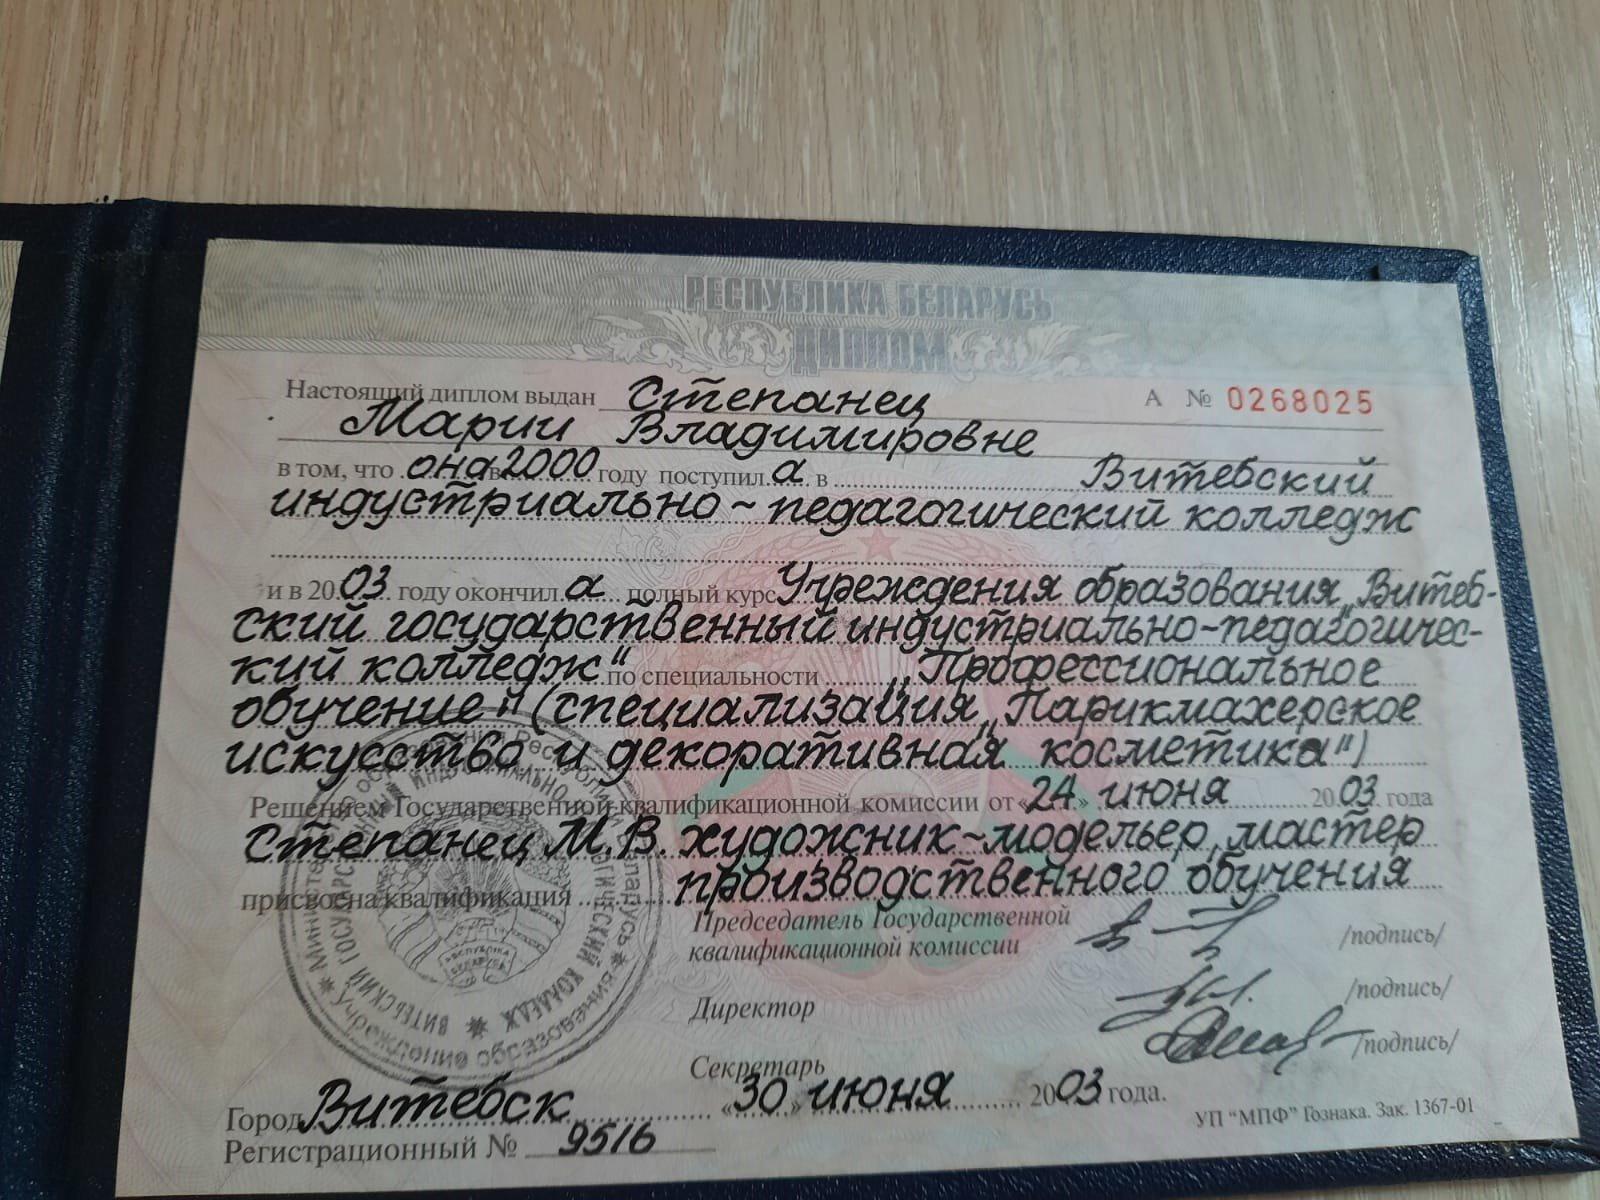 РЕСПУБЛИКА БЕЛАРУСЬ
ДИПЛОМ
Настоящий диплом выдан Степанец А № 0268025
Марии Владимировне
в том, что она в 2000 году поступила в Витебский
индустриально-педагогический колледж
и в 2003 году окончила полный курс Учреждения образования „Витеб-
ский государственный индустриально-педагогичес-
кий колледж“ по специальности „Профессиональное
обучение“ (специализация „Парикмахерское
искусство и декоративная косметика“)
Решением Государственной квалификационной комиссии от «24» июня 2003 года
Степанец М.В. художник-модельер, мастер
присвоена квалификация производственного обучения
Председатель Государственной
квалификационной комиссии /подпись/
Директор /подпись/
Секретарь /подпись/
Город Витебск «30» июня 2003 года.
Регистрационный № 9516
УП “МПФ” Гознака. Зак. 1367-01
Министерство образования Республики Беларусь
Учреждение образования
ВИТЕБСКИЙ ГОСУДАРСТВЕННЫЙ ИНДУСТРИАЛЬНО-ПЕДАГОГИЧЕСКИЙ КОЛЛЕДЖ
РЕСПУБЛІКА
БЕЛАРУСЬ